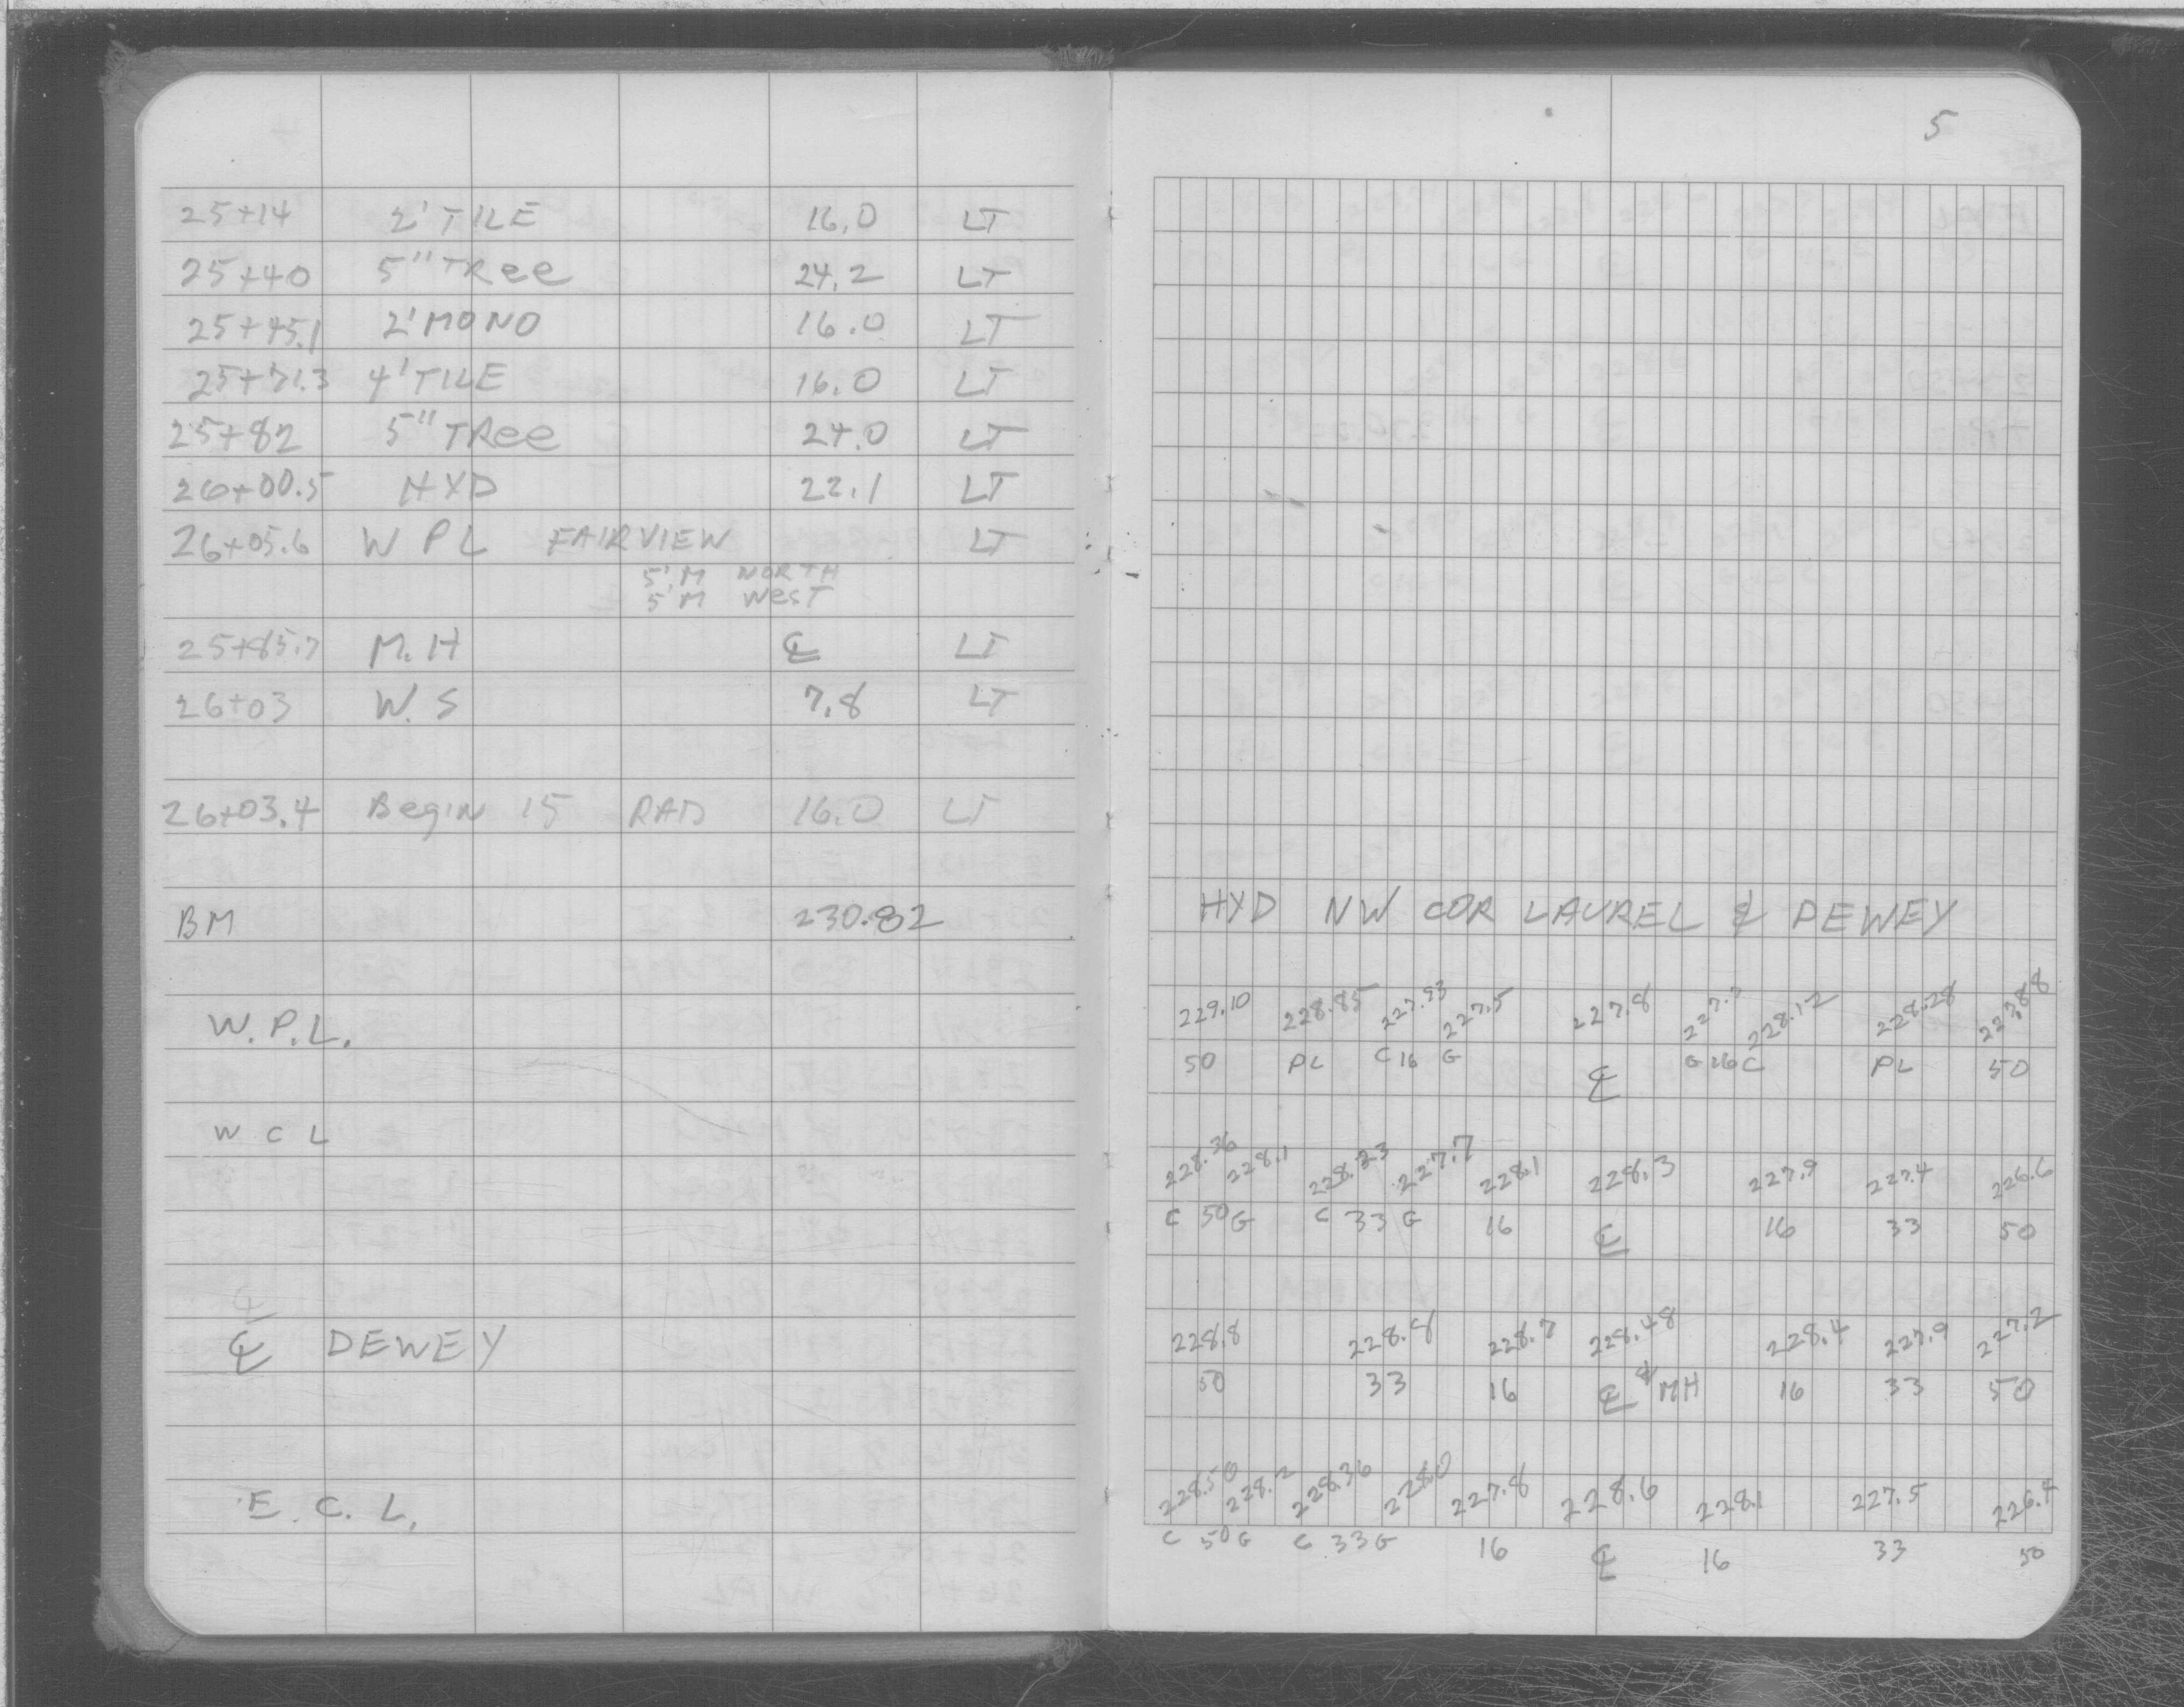 5
25+14 2' TILE 16.0 LT
25+40 5" TRee 24.2 LT
25+45.1 2' MONO 16.0 LT
25+71.3 4' TILE 16.0 LT
25+82 5" TRee 24.0 LT
26+00.5 HYD 22.1 LT
26+05.6 W P L FAIRVIEW LT
5' M NORTH
5' M WesT
25+85.7 M.H ℄ LT
26+03 W.S 7.8 LT
26+03.4 BegIN 15 RAD 16.0 LT
BM 230.82 HYD NW COR LAUREL & DEWEY
W.P.L. 229.10 228.85 227.93 227.5 227.8 227.7 228.12 228.28 227.88
50 PL C 16 G ℄ G 16 C PL 50
W C L 228.36 228.1 228.23 227.7 228.1 228.3 227.9 227.4 226.6
C 50 G C 33 G 16 ℄ 16 33 50
℄
℄ DEWEY 228.8 228.8 228.7 228.48 228.4 227.9 227.2
50 33 16 ℄ & MH 16 33 50
E.C.L. 228.50 228.2 228.36 228.0 227.8 228.6 228.1 227.5 226.4
C 50 G C 33 G 16 ℄ 16 33 50